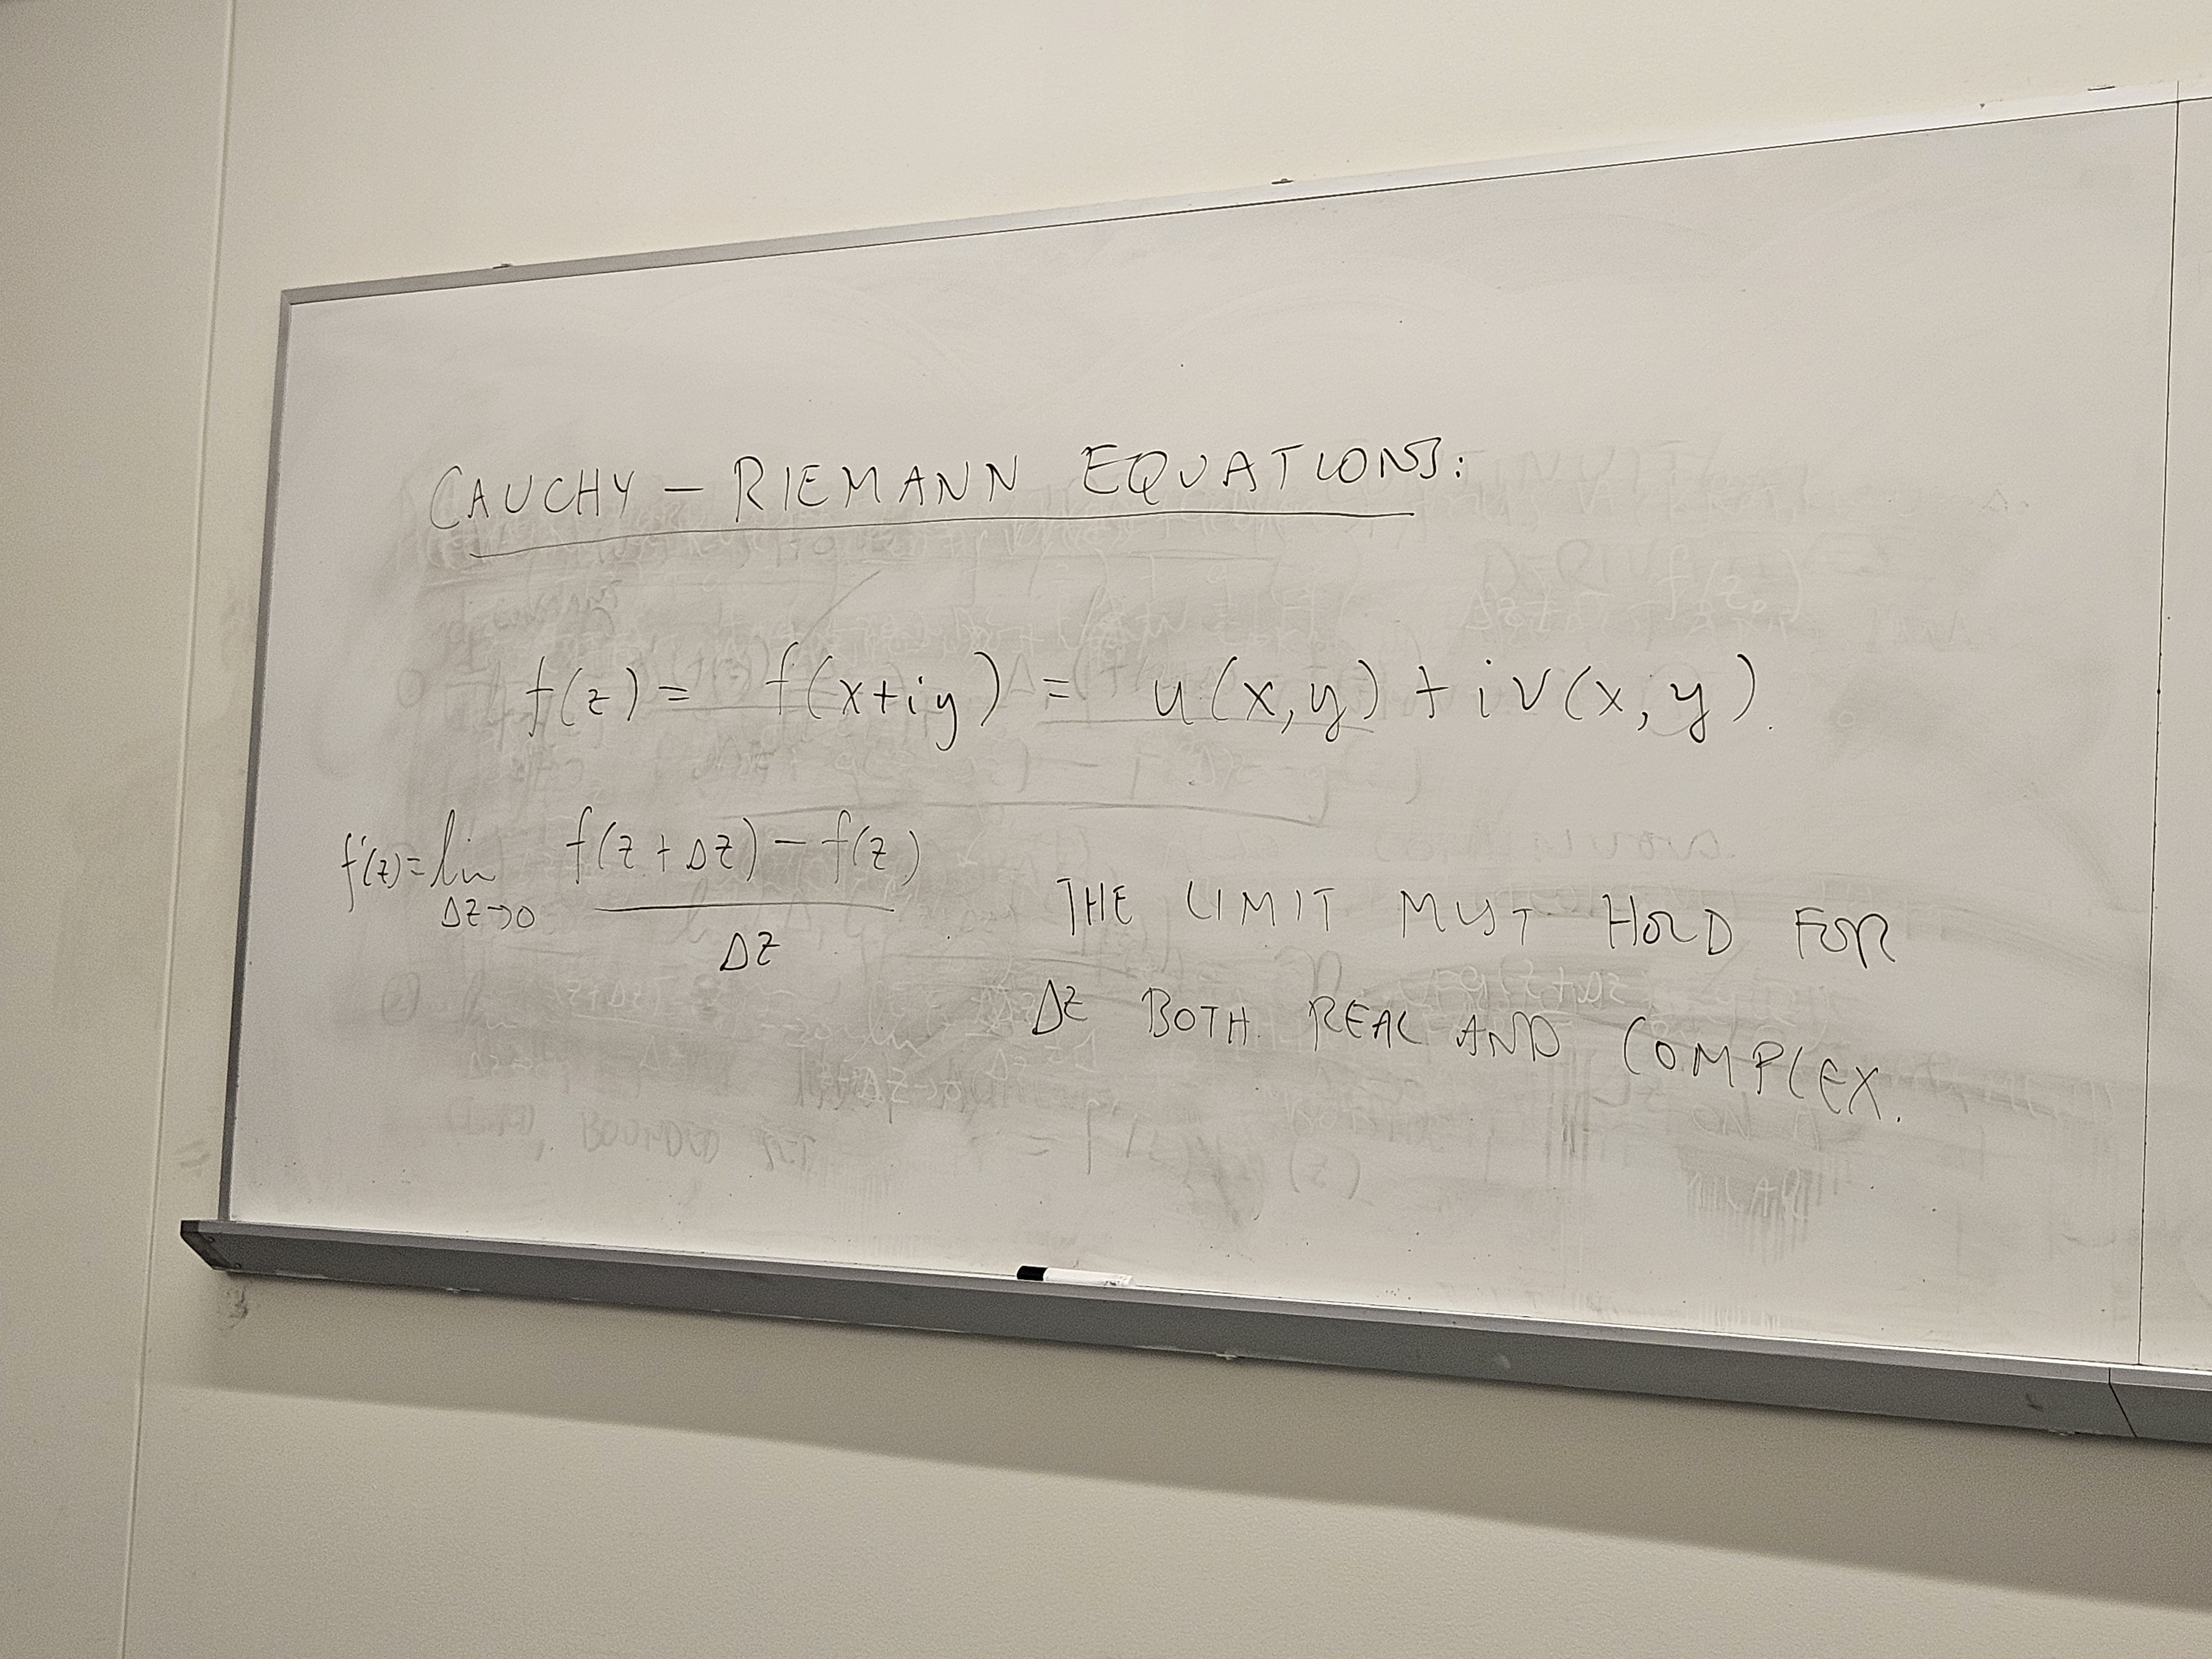 CAUCHY – RIEMANN EQUATIONS:
f(z) = f(x+iy) = u(x,y) + iv(x,y).
f'(z) = lim Δz→0 f(z+Δz) – f(z) / Δz
THE LIMIT MUST HOLD FOR
Δz BOTH REAL AND COMPLEX.